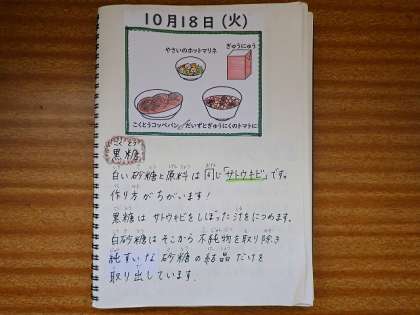 10月18日(火)
やさいのホットマリネ
ぎゅうにゅう
こくとうコッペパン
だいずとぎゅうにくのトマトに
こくとう
黒糖
白い砂糖と原料は同じ「サトウキビ」です。
作り方がちがいます!
黒糖は サトウキビをしぼった汁をにつめます。
白砂糖はそこから 不純物を取り除き
純すいな 砂糖の結晶だけを
取り出しています。